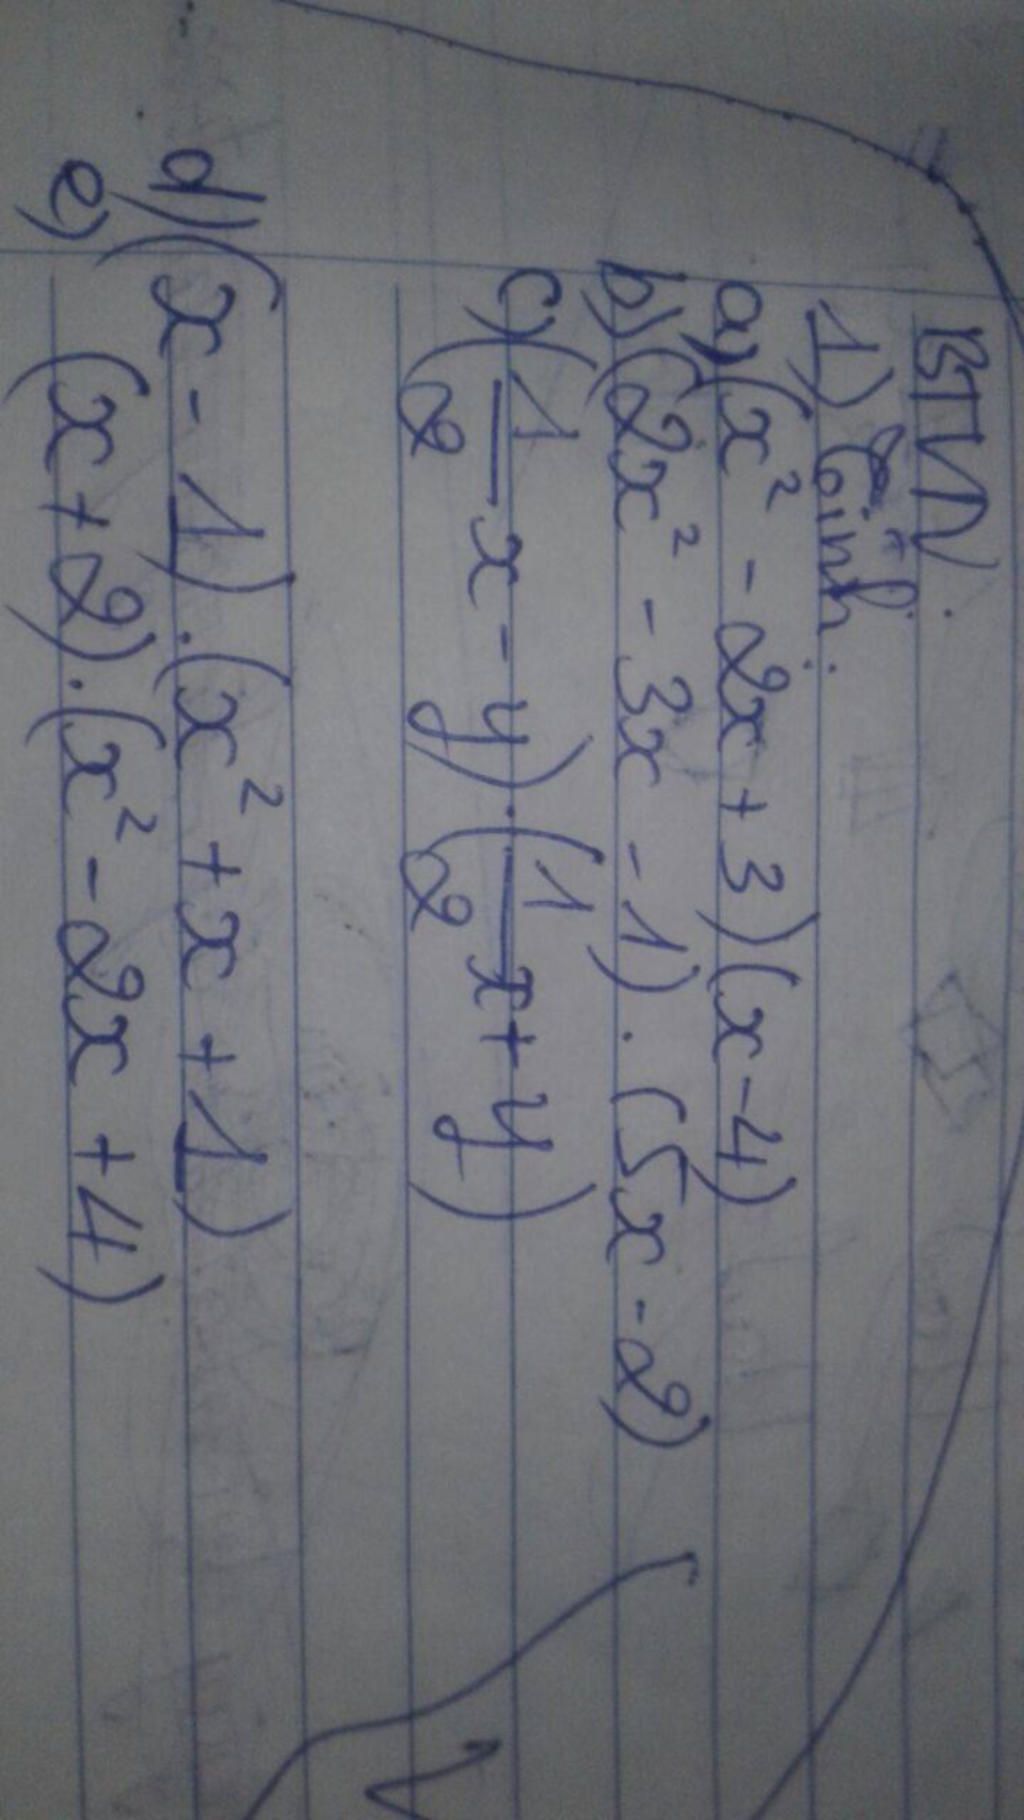 BTVN.
1) Tính:
a) (x² - 2x + 3)(x - 4)
b) (2x² - 3x - 1) . (5x - 2)
c) (1/2 x - y) . (1/2 x + y)
d) (x - 1) . (x² + x + 1)
e) (x + 2) . (x² - 2x + 4)